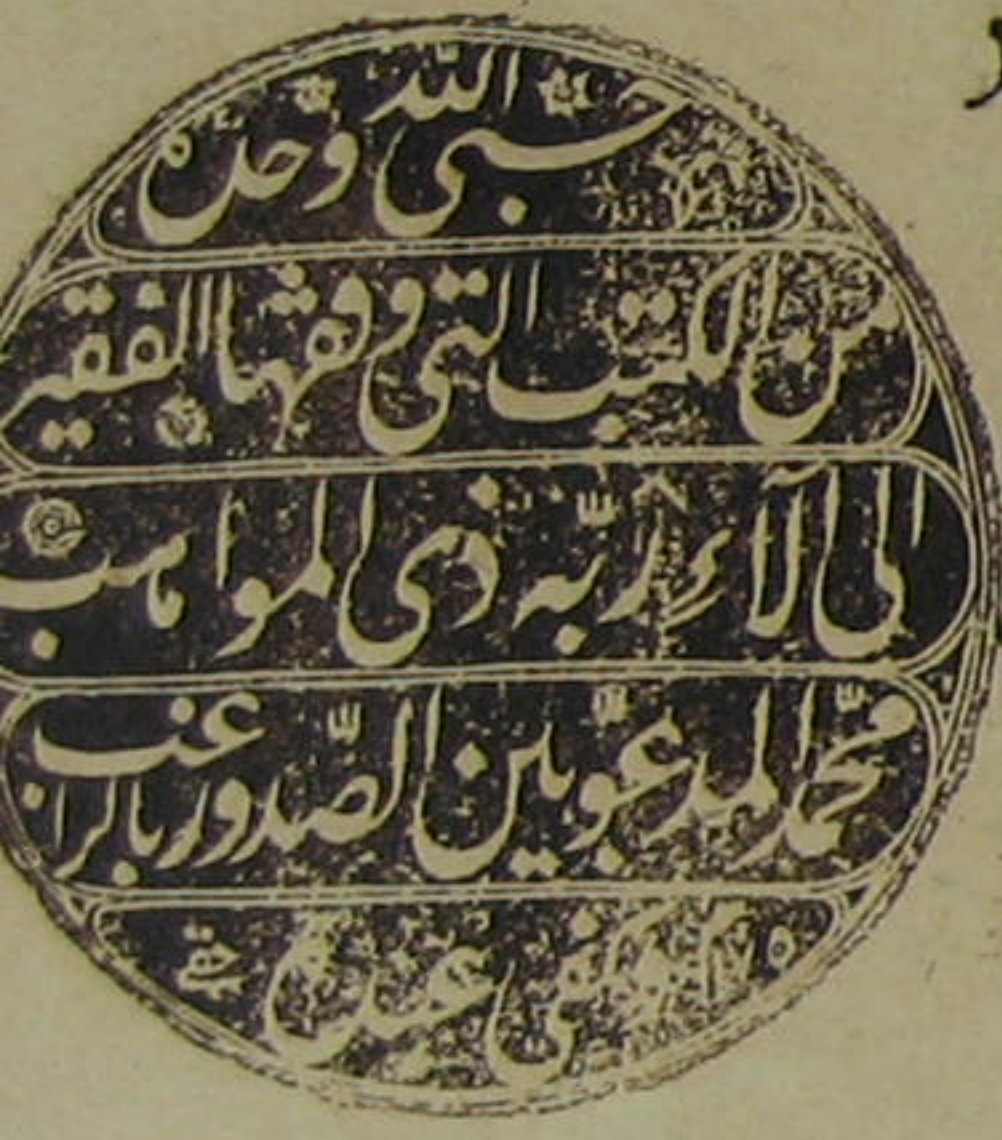 حسبى الله وحده
من الكتب التى وقفها الفقير
الى آلاء ربّه ذى المواهب
محمّد المدعوّ بين الصّدور بالراغب
عبده